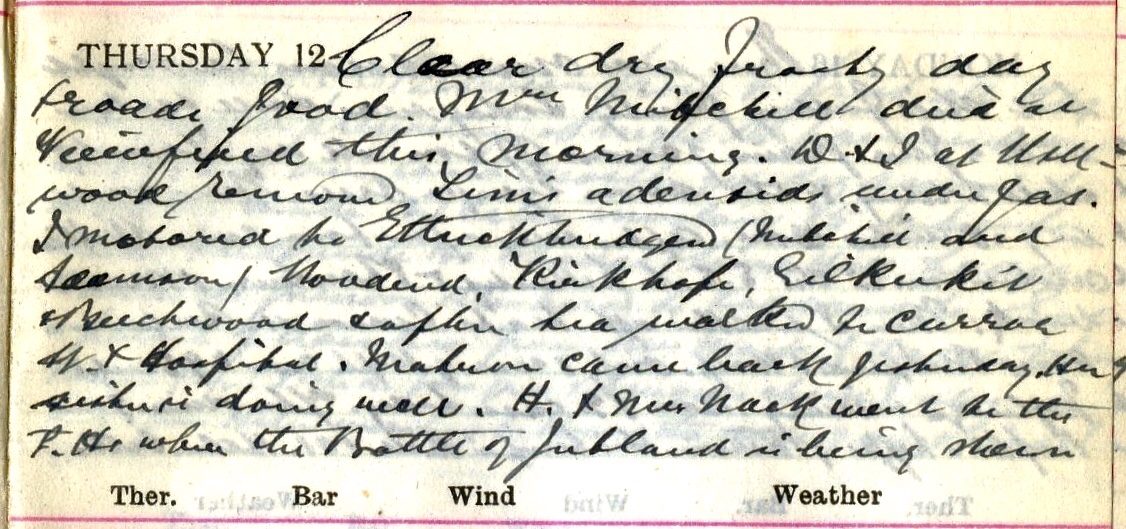 THURSDAY 12 Clear dry frosty day
& roads good. Mrs Mitchell died at
Viewfield this morning. D & I at Hill-
wood remove adenoids under gas.
I motored to Ettrickbridgend (Mitchell and
Woodend, Kirkhope, Gilkerkit
& Beechwood & after tea walked to Curror
St. & Hospital. Matron came back yesterday. Her
sister is doing well. H. & Mrs Mack went to the
P. Ho where the Battle of Jutland is being shewn
Ther. Bar Wind Weather